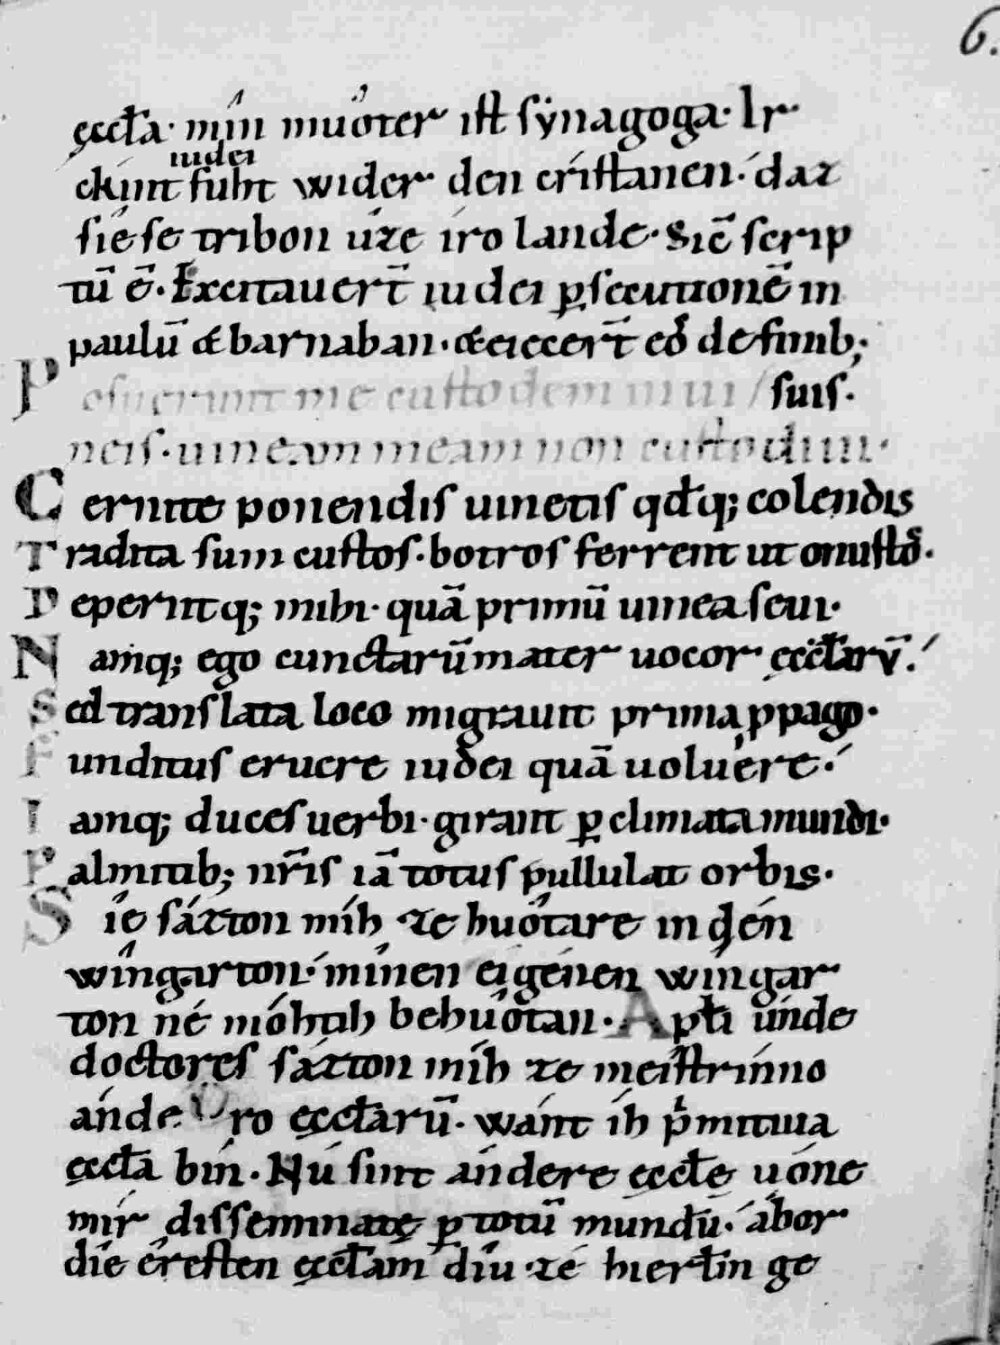 6.
ęccɫa· mîn muoter ist sýnagoga· Ir
iudei
ckint fuht wider den cristanen· daz
sié se tribon uze íro lande· Sic̄ scrip
tū ē· Excitauer̄t iudei ꝑsecutionē in
paulū & barnaban· & eiecer̄t eoſ de finib;
suis·
Posuerunt me custodem in ui/
neis· uineam meam non custodiui·
Cernite ponendis uinetis qd̄q; colendis
Tradita sum custos· botros ferrent ut onustoſ·
Pepeřitq; mihi· quā primū uinea seui·
Namq; ego cunctarū mater uocor ęccɫarū·
Sed translata loco migrauit prima ꝓpago·
Funditus eruere iudei quā uoluere·
Iamq; duces uerbi· girant ꝑ climata mundi·
Palmitib; nr̄is iā totus pullulat orbis·
Sie sázton míh ze huótare in dén
wîngarton· mînen eigenen wîngar
ton né móhtih behuótan· Apɫi únde
doctores sázton míh ze meistrínno
ándero ęccɫarū· wánt íh pͥmitiua
ęccɫa bín· Nú sint ándere ęccɫe uóne
mír disseminatę ꝑ totū mundū· ábor
díe éresten ęccɫam díu zé hierɫin ge